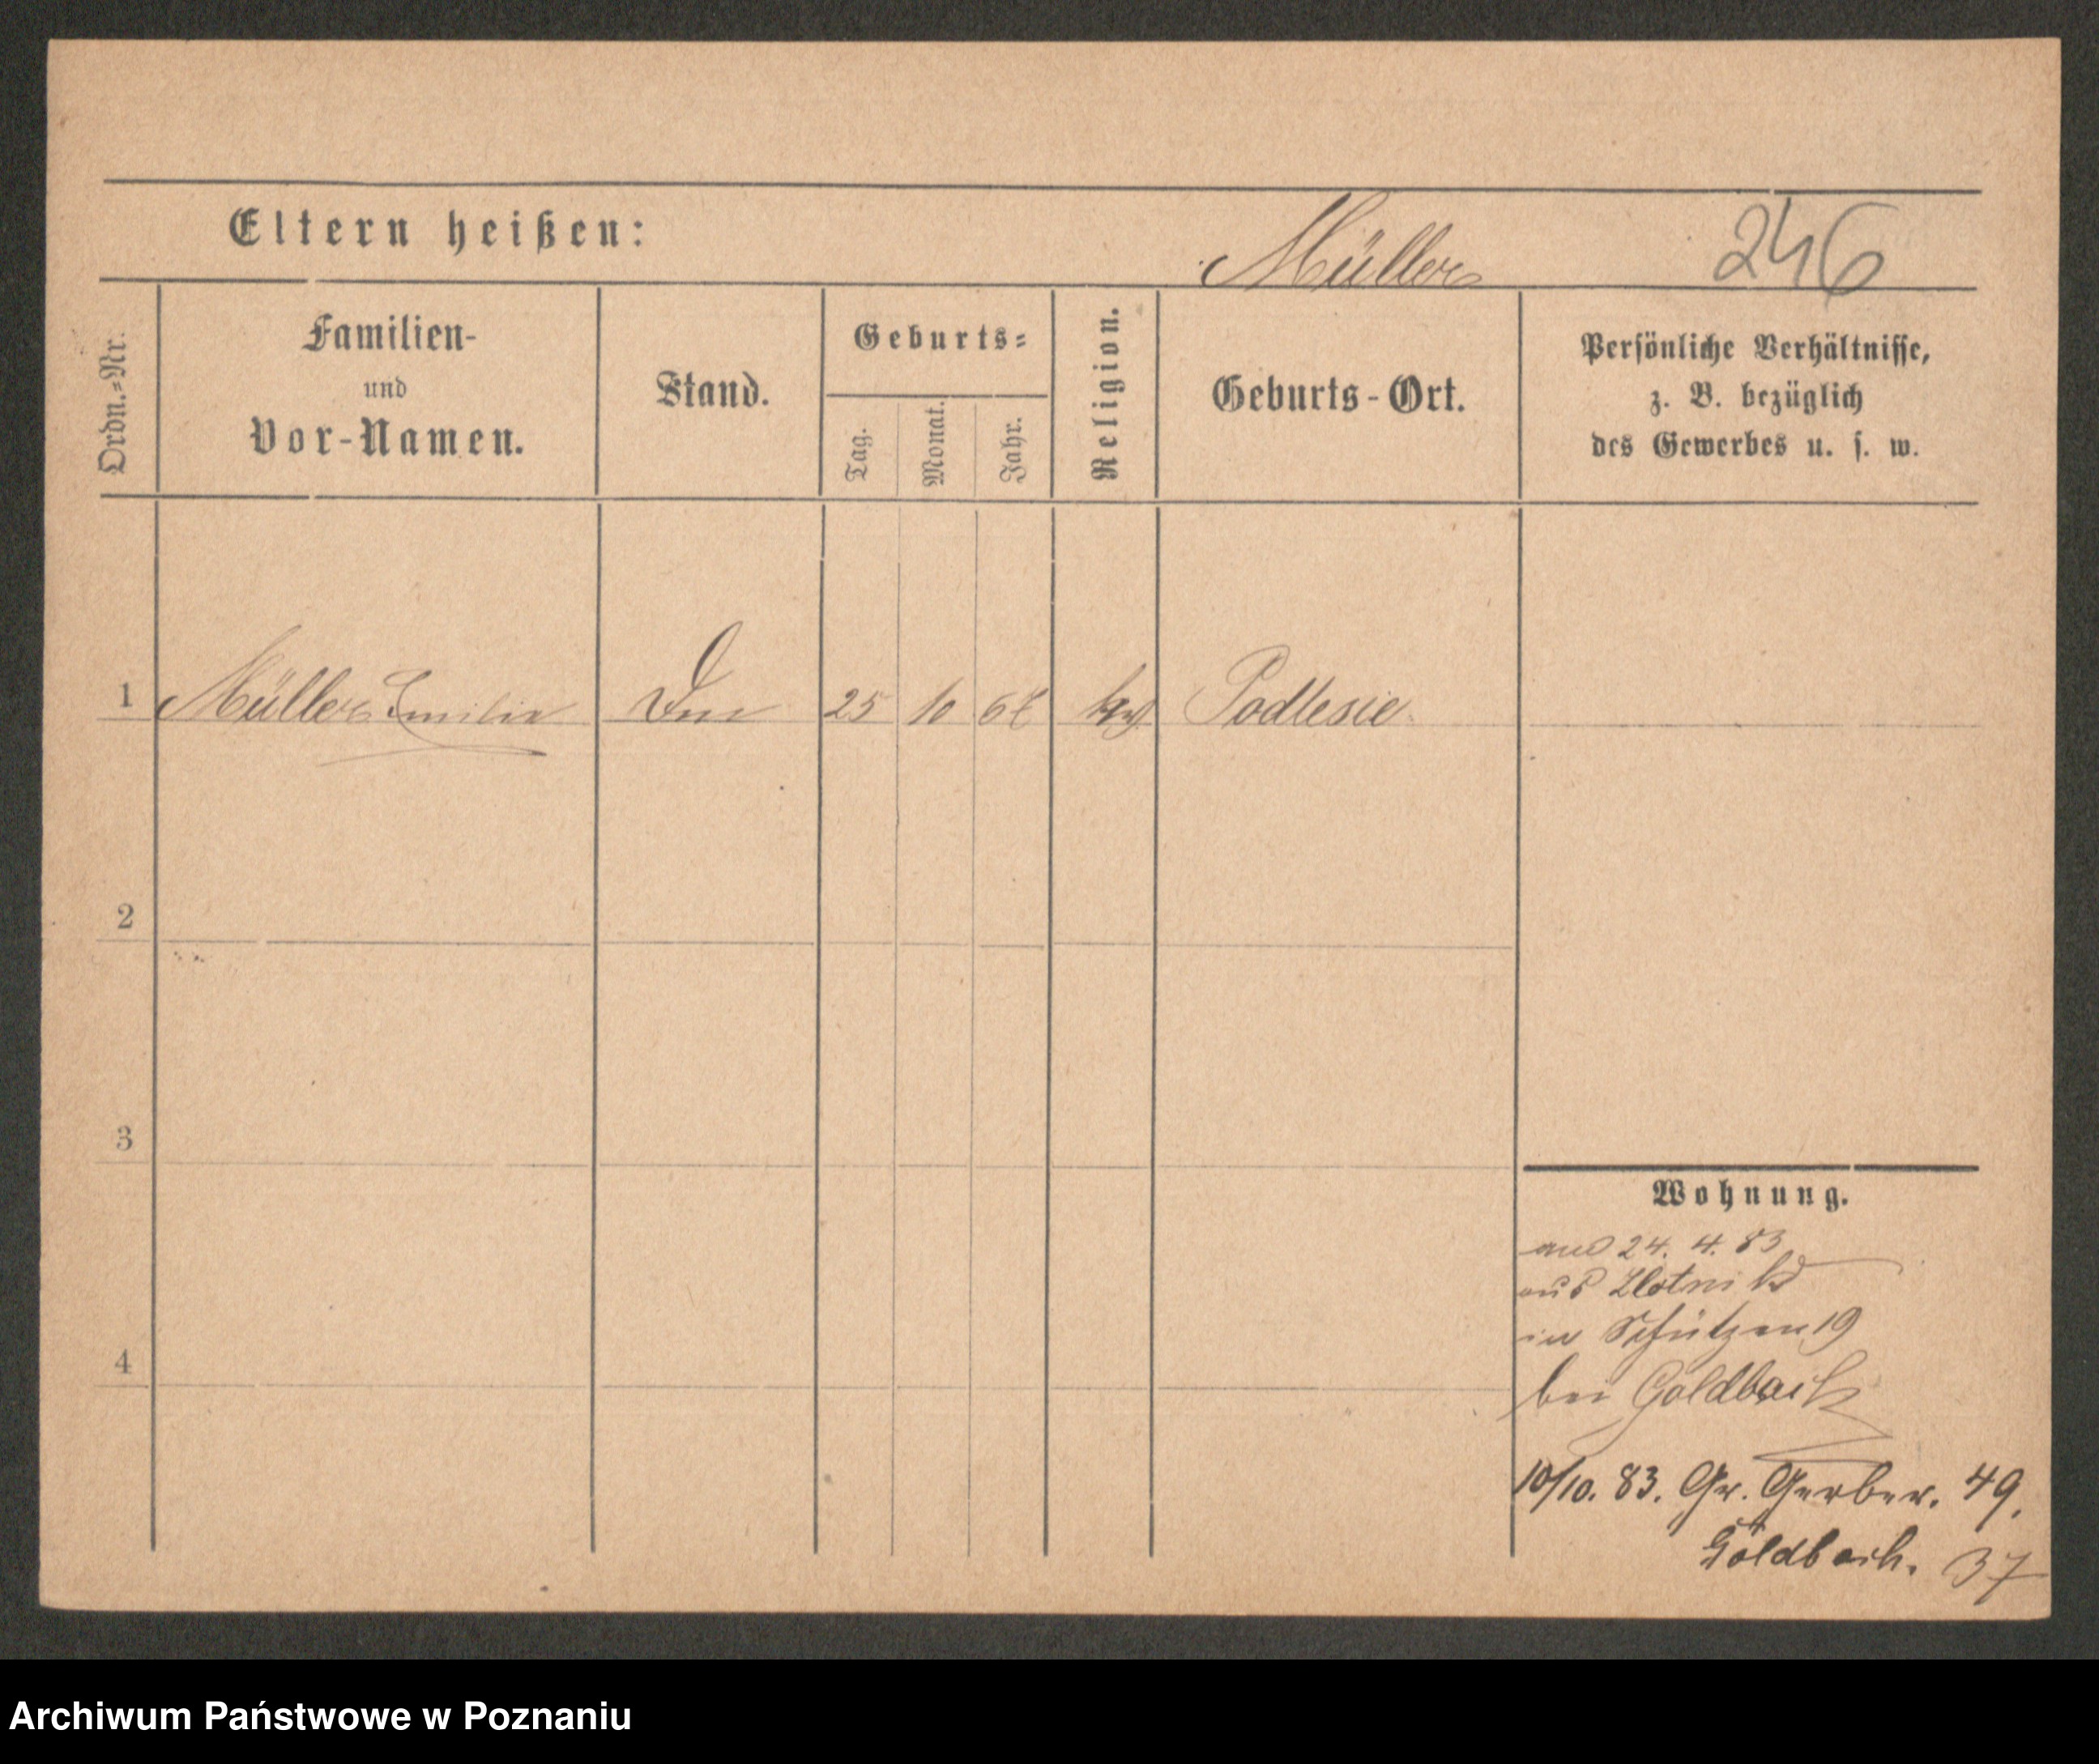 Eltern heißen: Müller 246
Ordn.=Nr.
Familien-
und
Vor-Namen.
Stand.
Geburts=
Tag.
Monat.
Jahr.
Religion.
Geburts-Ort.
Persönliche Verhältnisse,
z. B. bezüglich
des Gewerbes u. s. w.
1 Müller Emilie 25 10 Podlesie
2
3
4
Wohnung.
24. 4. 83
aus Zlotnik
in Schützen 19
bei Goldbach
10/10. 83. Gr. Gerber. 49.
Goldbach. 37
Archiwum Państwowe w Poznaniu